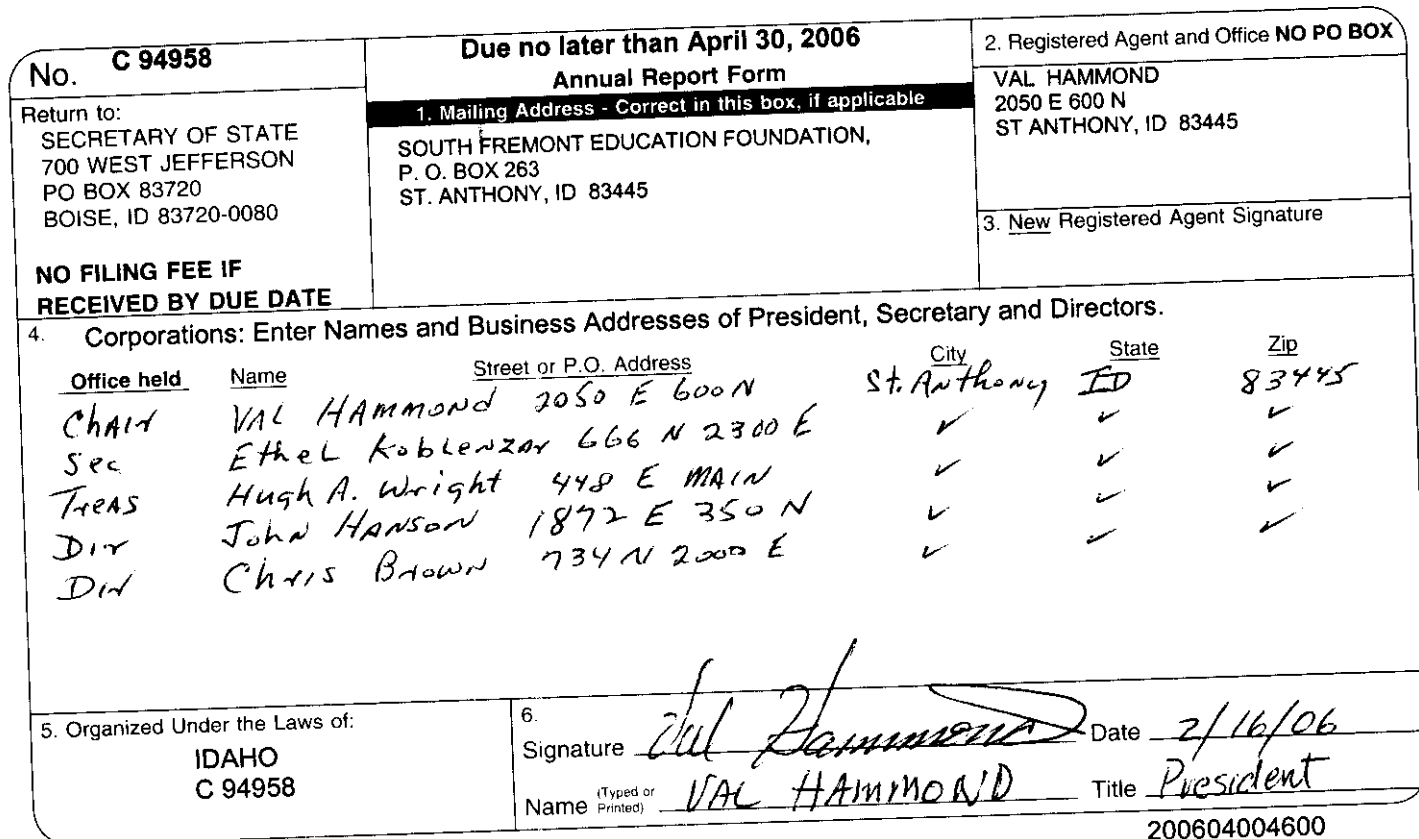 No. C 94958
Return to:
SECRETARY OF STATE
700 WEST JEFFERSON
PO BOX 83720
BOISE, ID 83720-0080
NO FILING FEE IF
RECEIVED BY DUE DATE
Due no later than April 30, 2006
Annual Report Form
1. Mailing Address - Correct in this box, if applicable
SOUTH FREMONT EDUCATION FOUNDATION,
P. O. BOX 263
ST. ANTHONY, ID 83445
2. Registered Agent and Office NO PO BOX
VAL HAMMOND
2050 E 600 N
ST ANTHONY, ID 83445
3. New Registered Agent Signature
4. Corporations: Enter Names and Business Addresses of President, Secretary and Directors.
Office held Name Street or P.O. Address City State Zip
Chair VAL HAMMOND 2050 E 600 N St. Anthony ID 83445
Sec Ethel Koblenzar 666 N 2300 E ✓ ✓ ✓
Treas Hugh A. Wright 448 E MAIN ✓ ✓ ✓
Dir John HANSON 1872 E 350 N ✓ ✓ ✓
Dir Chris Brown 734 N 2000 E ✓ ✓ ✓
5. Organized Under the Laws of:
IDAHO
C 94958
6.
Signature Val Hammond Date 2/16/06
Name (Typed or Printed) VAL HAMMOND Title President
200604004600